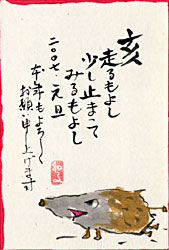 亥
走るもよし
少し止まって
みるもよし
二〇〇七、元旦
本年もよろしく
お願い申し上げます